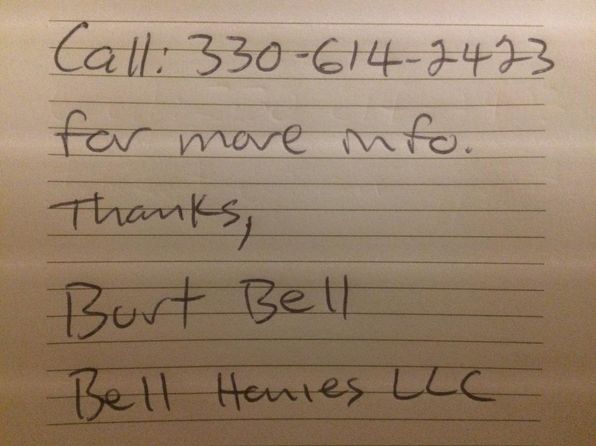 Call: 330-614-2423
for more info.
Thanks,
Burt Bell
Bell Henries LLC